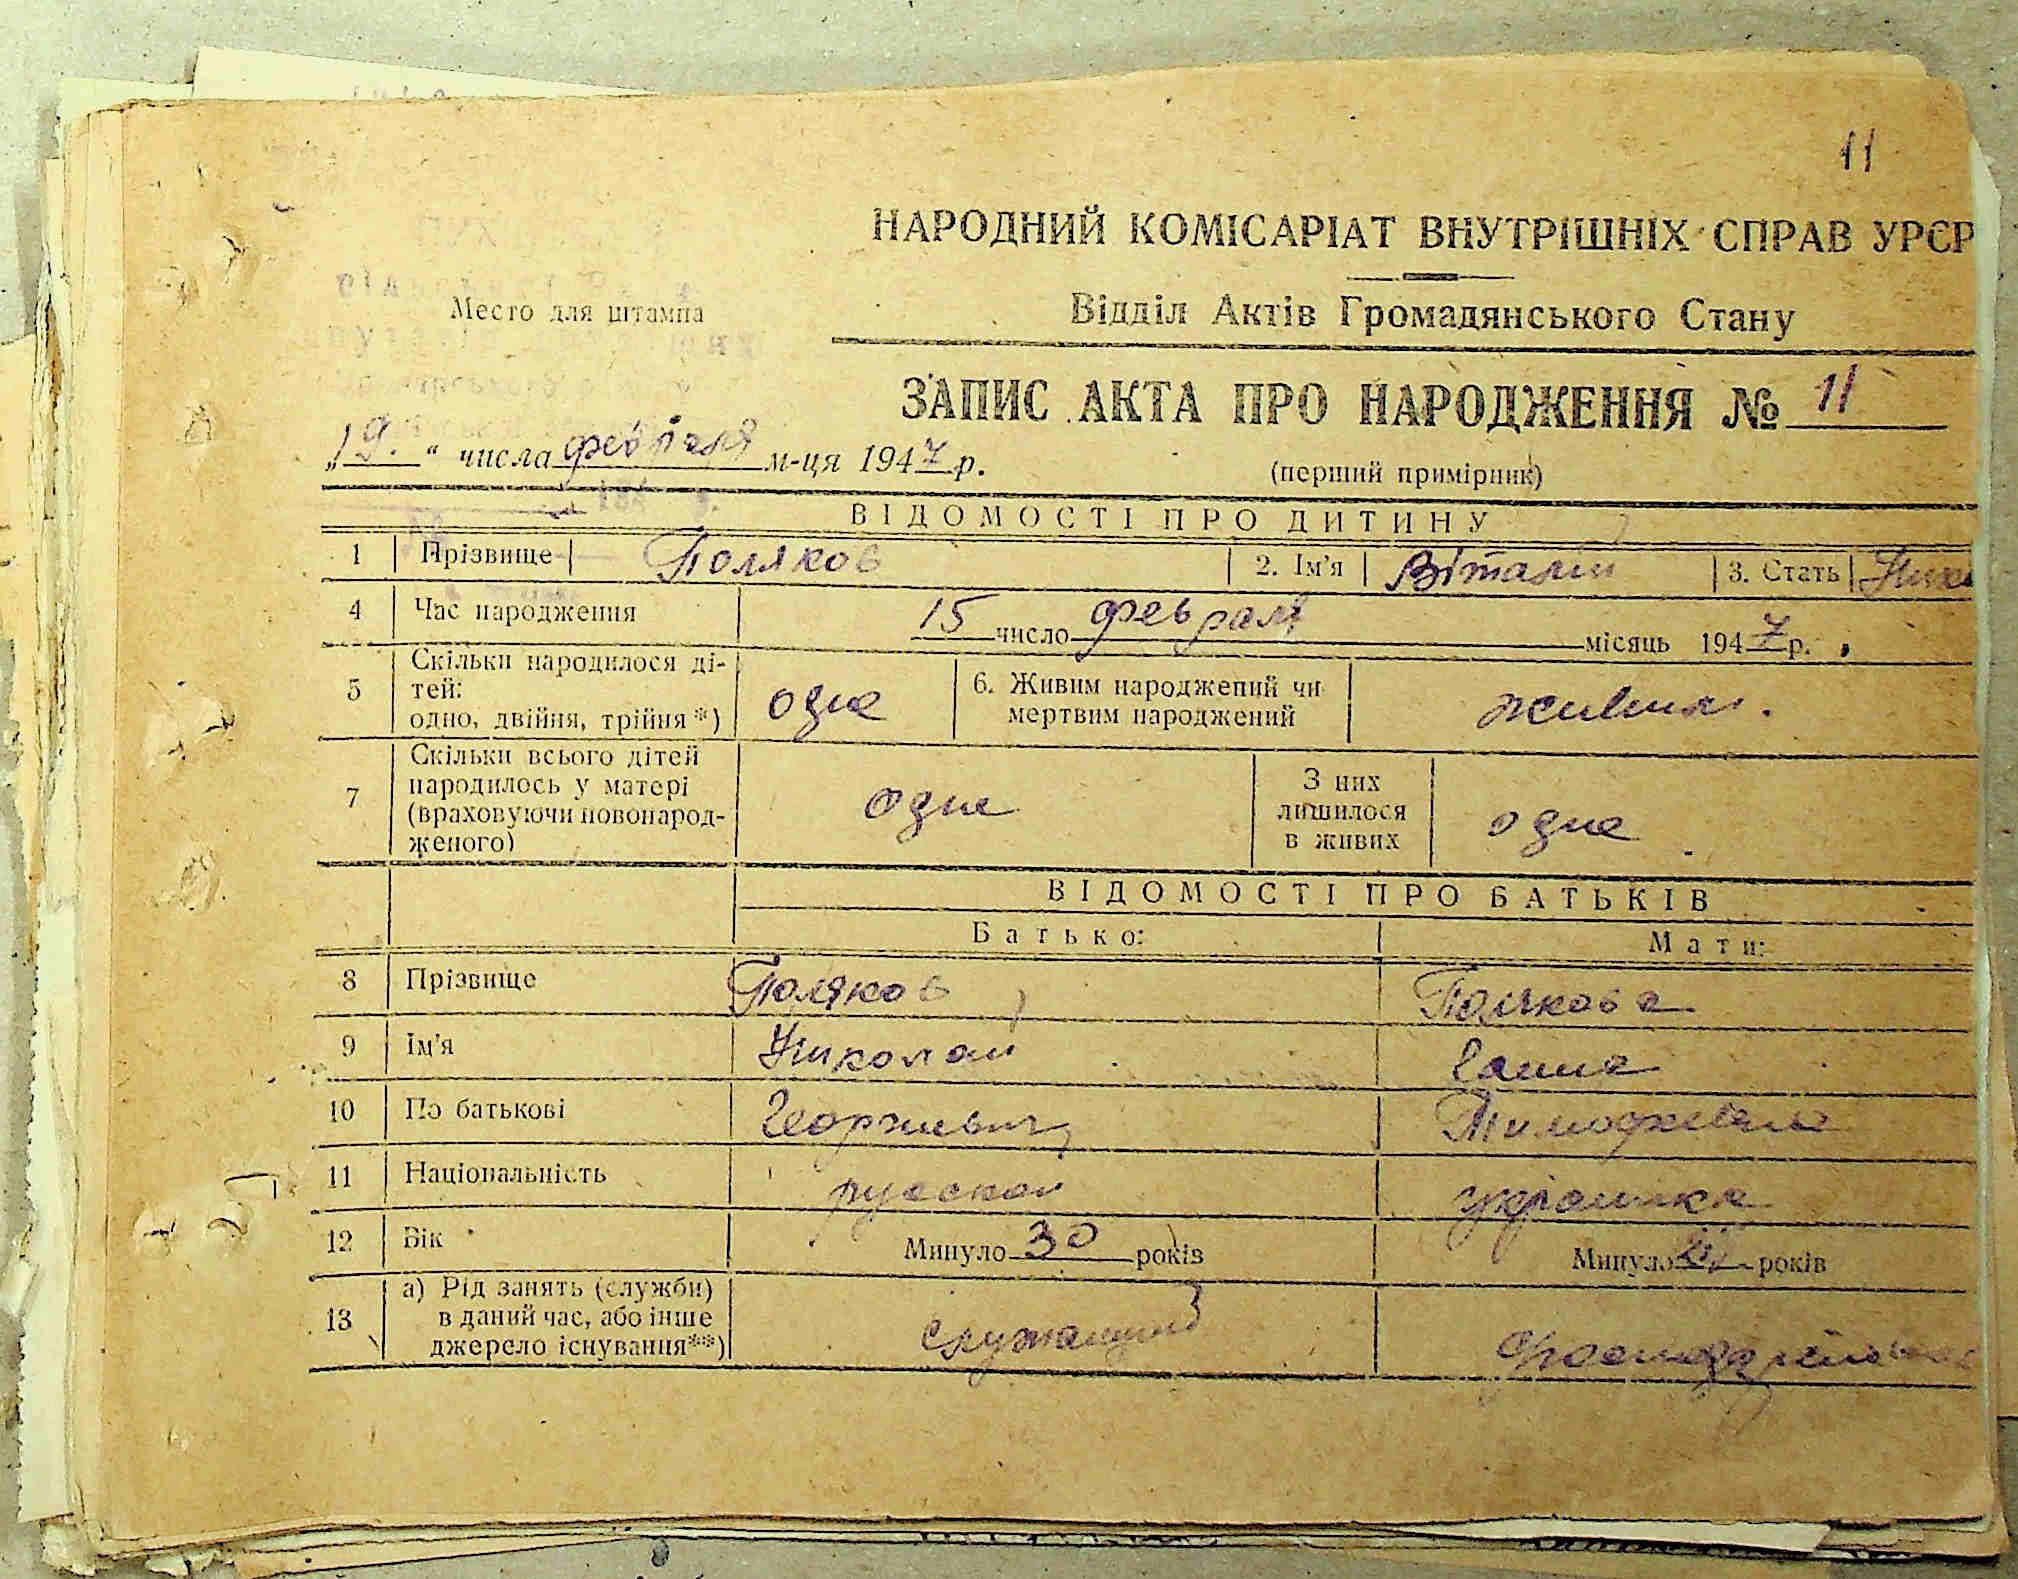 11
НАРОДНИЙ КОМІСАРІАТ ВНУТРІШНІХ СПРАВ УРСР
Место для штампа
Відділ Актів Громадянського Стану
ЗАПИС АКТА ПРО НАРОДЖЕННЯ № 11
„19.“ числа февраля м-ця 1947 р.
(перший примірник)
ВІДОМОСТІ ПРО ДИТИНУ
1 Прізвище Поляков 2. Ім'я Віталій 3. Стать
4 Час народження 15 число февраля місяць 1947 р.
5 Скільки народилося ді-
тей:
одно, двійня, трійня*) одне 6. Живим народжений чи
мертвим народжений живим.
7 Скільки всього дітей
народилось у матері
(враховуючи новонарод-
женого) одне З них
лишилося
в живих одне
ВІДОМОСТІ ПРО БАТЬКІВ
Батько: Мати:
8 Прізвище Поляков Полякова
9 Ім'я Николай Ганна
10 По батькові Георгиевич Тимофеевна
11 Національність руский українка
12 Вік Минуло 30 років Минуло років
13 а) Рід занять (служби)
в даний час, або інше
джерело існування**) служащий